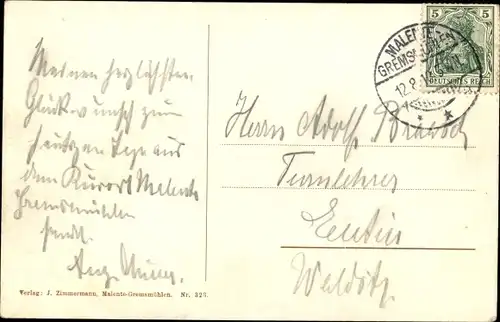 Meinen herzlichsten
Glückwunsch zum
heutgen Tage aus
dem Kurort Malente
Gremsmühlen
sendet
Aug.
Verlag: J. Zimmermann, Malente-Gremsmühlen. Nr. 323.
5 5
DEUTSCHES REICH
MALENTE-
GREMSMÜHLEN
12.8.
Herrn Adolf
Turnlehrer
Eutin